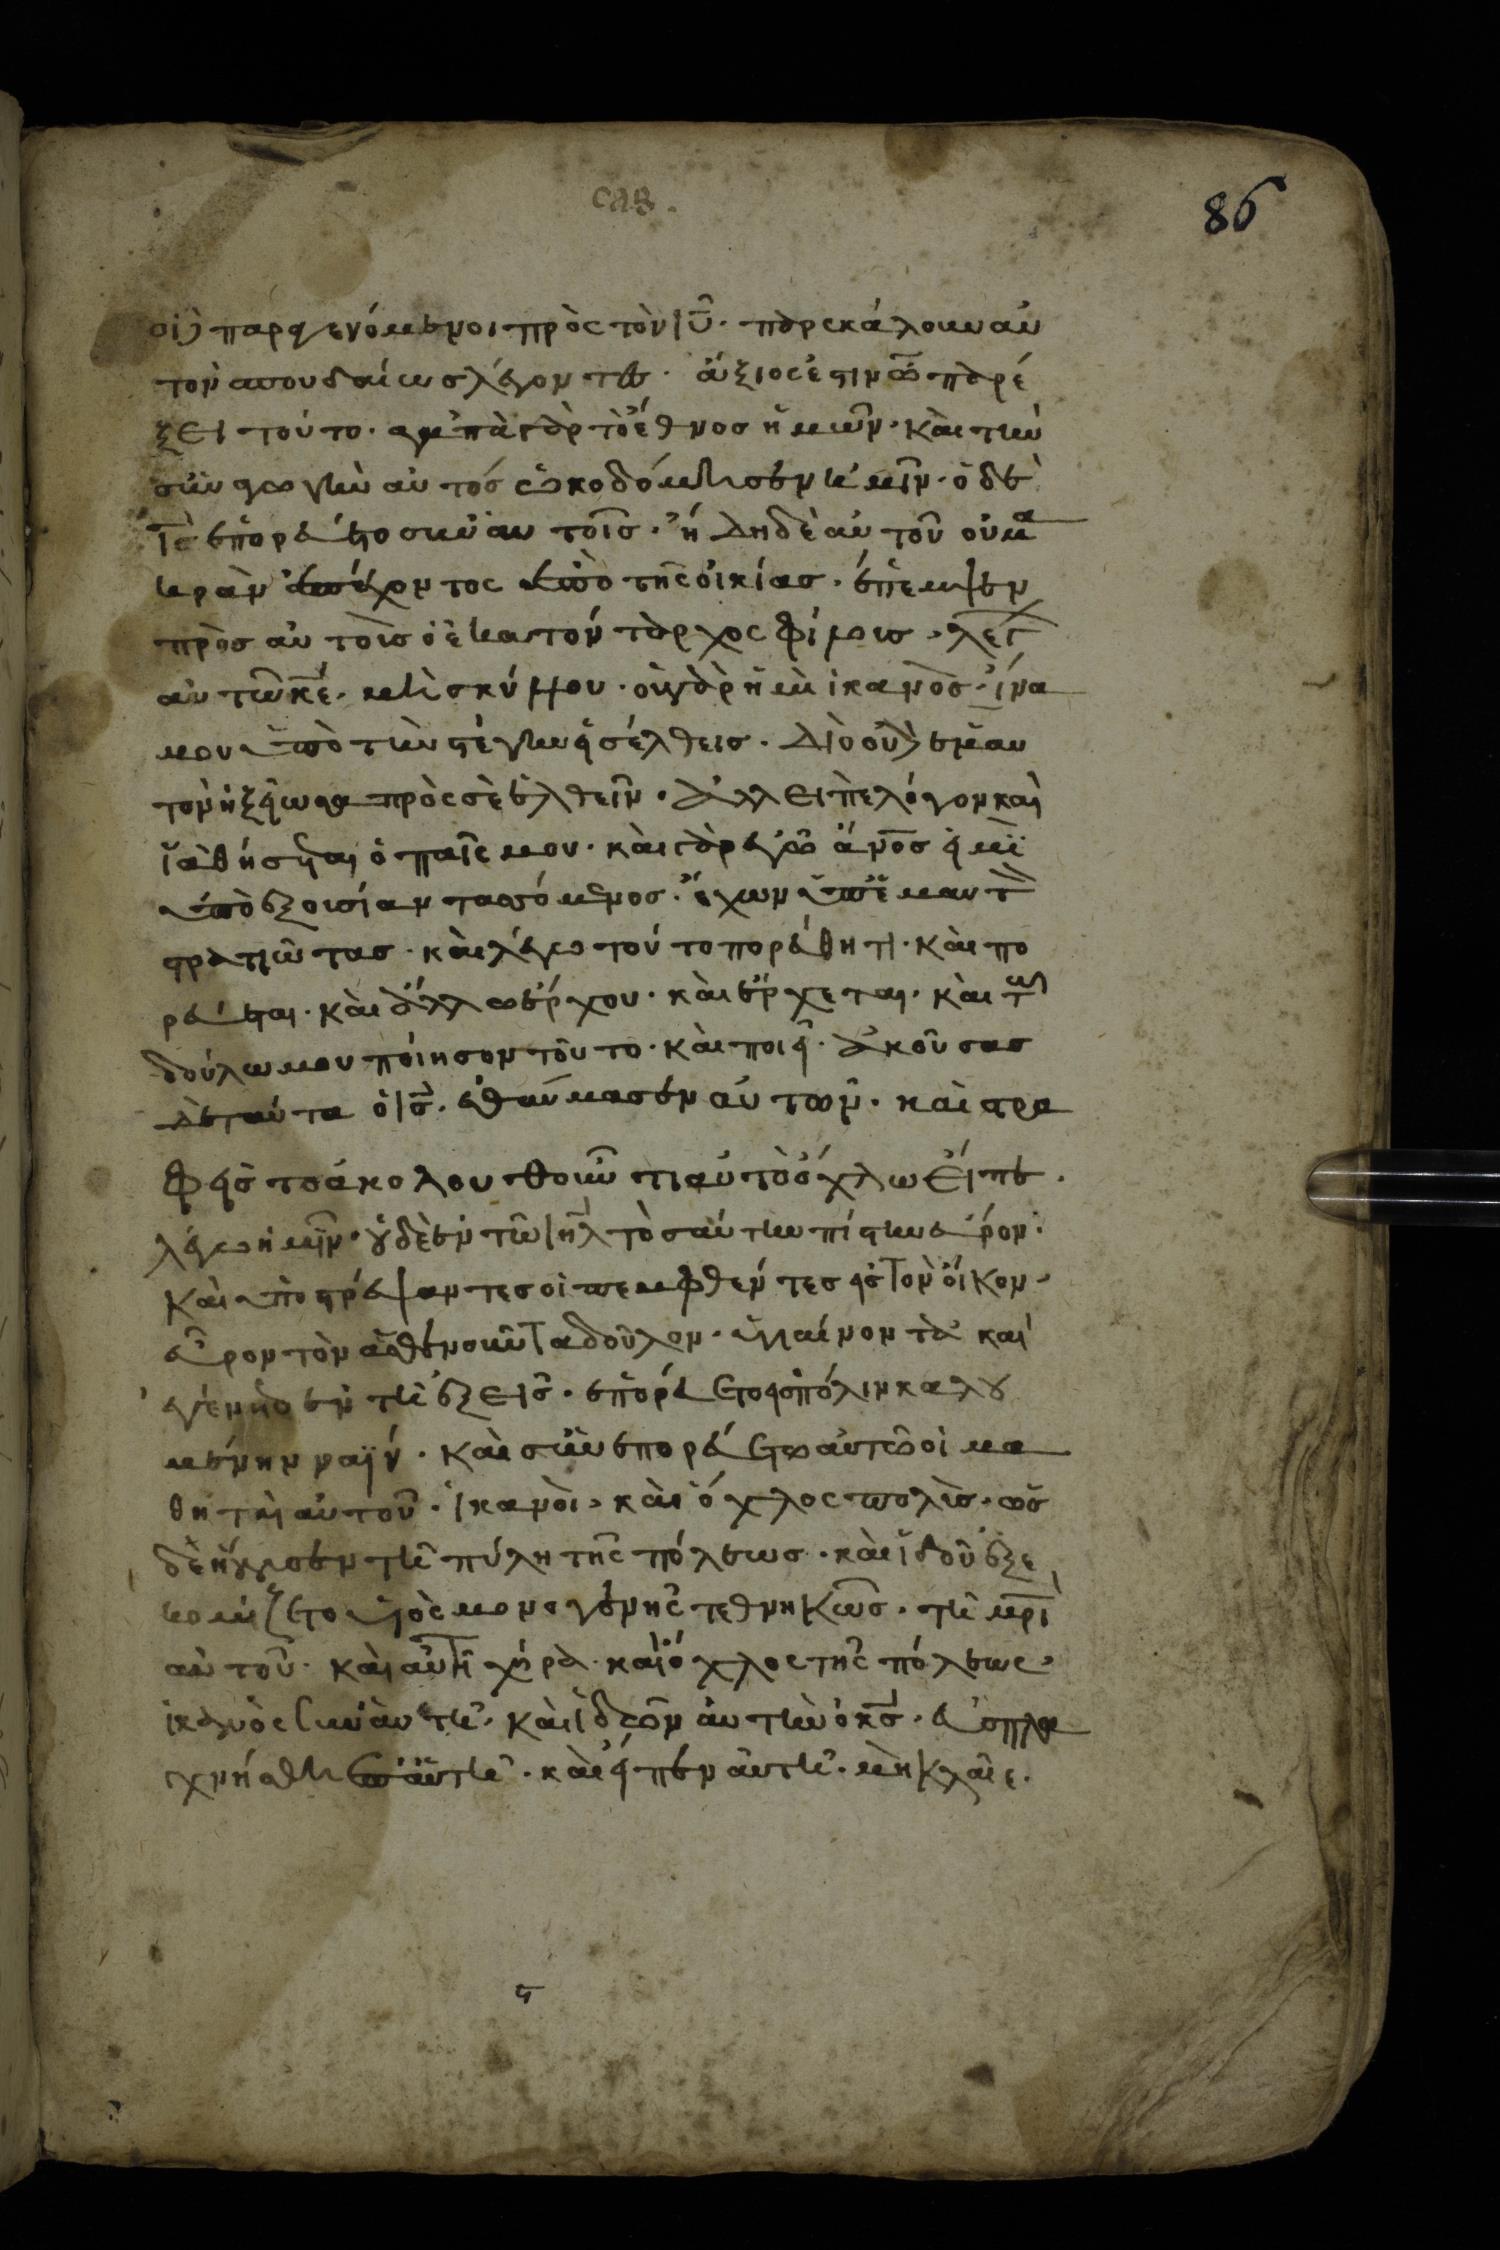 σλβ.
86
οἱ παραγενόμενοι πρὸς τὸν ἰῦ· παρεκάλουν αὐ
τὸν σπουδαίως λέγοντες· ἄξιος ἐστιν ὧ παρέ
ξει τούτο· ἀγαπὰ γὰρ τὸ ἔθνος ἡμῶν· καὶ τὴν
συναγωγὴν αὐτός ὠκοδόμησεν ἡμῖν· ὁ δὲ
ἰς ἐπορεύετο σὺν αὐτοῖς· ἤδη δὲ αὐτοῦ οὐ μα
κρὰν ἀπέχοντος ἀπὸ τῆς οἰκίας· ἔπεμψεν
πρὸς αὐτὸν ὁ ἑκατόνταρχος φίλους· λεγ
αὐτῶ κε· μὴ σκύλλου· οὐ γὰρ ἠμὶ ἱκανὸς ἵνα
μου ὑπὸ τὴν στέγην εἰσέλθεις· διὸ οὐδὲ ἐμαυ
τὸν ἠξίωσα πρὸς σὲ ἐλθεῖν· ἀλλ εἰπὲ λόγον καὶ
ἰαθήσεται ὁ παῖς μου· καὶ γὰρ ἐγὼ ἄνος εἰμὶ
ὑπὸ ἐξουσίαν τασσόμενος· ἔχων ὑπ ἐμαυτὸν
στρατιώτας· καὶ λέγω τούτο πορεύθητι· καὶ πο
ρεύεται· καὶ ἄλλω ἔρχου· καὶ ἔρχεται· καὶ τῶ
δούλω μου ποίησον τοῦτο· καὶ ποιεῖ· ἀκούσας
δὲ ταύτα ὁ ἰς· ἐθαύμασεν αὐτὸν· καὶ στρα
φεὶς τῶ ἀκολουθοῦντι αὐτὸ ὄχλω εἶπε·
λέγω ἡμῖν· οὐδὲ ἐν τῶ ἰηλ τὸσαύτην πίστην εὗρον·
καὶ ὑποστρέψαντες οἱ πεμφθέντες εἰς τὸν οἶκον·
εὗρον τὸν ἀσθενοῦντα δοῦλον· ὑγιαίνοντα· καὶ
ἐγένετο ἐν τῆ ἑξῆς· ἐπορεύετο εἰς πόλιν καλου
μένην ναΐν· καὶ συνεπορεύοντο αὐτῶ οἱ μα
θηταὶ αὐτοῦ· ἱκανοὶ· καὶ ὄχλος πολὺς· ὡς
δὲ ἤγγισεν τῆ πύλη τῆς πόλεως· καὶ ἰδοὺ ἐξε
κομίζετο υἱὸς μονογενὴς τεθνηκὼς· τῆ μρὶ
αὐτοῦ· καὶ αὐτὴ χήρα· καὶ ὄχλος τῆς πόλεως·
ἱκανὸς σὺν αὐτῆ· καὶ ἰδὼν αὐτὴν ὁ κς· εὐσπλα
χνήσθη ἐπ αὐτῆ· καὶ εἶπεν αὐτῆ· μὴ κλαῖε·